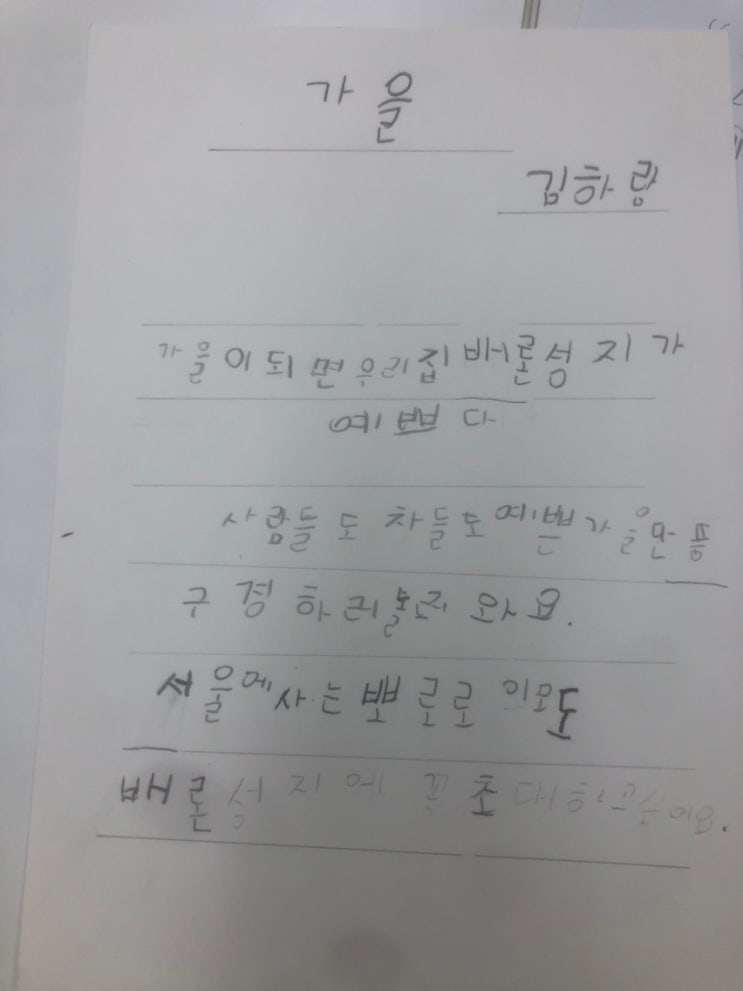 가을
김하랑
가을이되면 우리집 배론성지가
예쁘다
사람들도 차들도 예쁜 가을만풍
구경하러 놀러 와요.
서울에 사는 뽀로로 이모도
배론성지에 꼭 초대하고싶어요.